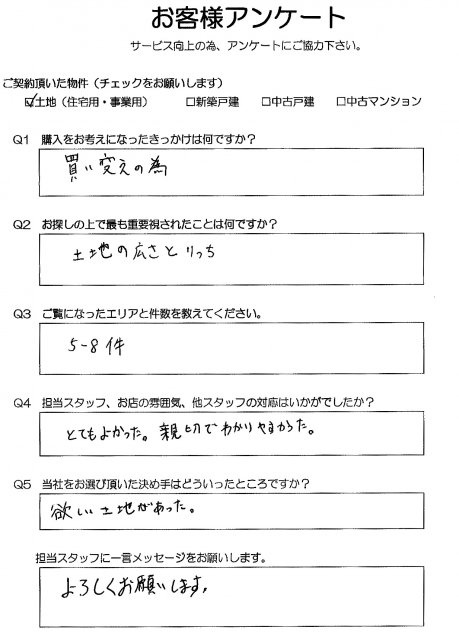 お客様アンケート
サービス向上の為、アンケートにご協力下さい。
ご契約頂いた物件（チェックをお願いします）
☑土地（住宅用・事業用） □新築戸建 □中古戸建 □中古マンション
Q1 購入をお考えになったきっかけは何ですか？
買い変えの為
Q2 お探しの上で最も重要視されたことは何ですか？
土地の広さとりっち
Q3 ご覧になったエリアと件数を教えてください。
5-8件
Q4 担当スタッフ、お店の雰囲気、他スタッフの対応はいかがでしたか？
とてもよかった。親切でわかりやすかった。
Q5 当社をお選び頂いた決め手はどういったところですか？
欲しい土地があった。
担当スタッフに一言メッセージをお願いします。
よろしくお願いします。